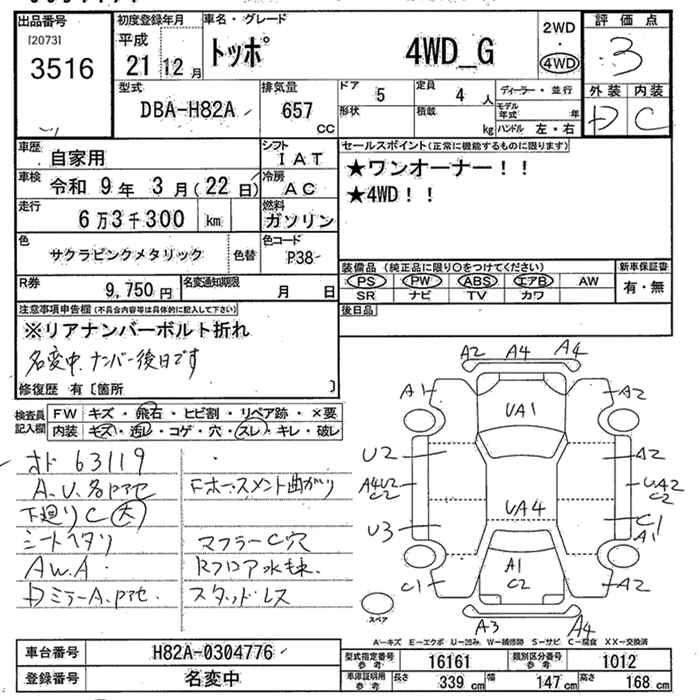 出品番号
[2073]
3516
初度登録年月
平成
21 12 月
車名・グレード
トッポ 4WD_G
2WD
・
4WD
評価点
3
外装 内装
D C
型式
DBA-H82A
排気量
657 CC
ドア
5
定員
4 人
形状
積載
kg
ディーラー・並行
モデル年式 年
ハンドル 左・右
車歴
自家用
シフト
IAT
車検
令和 9 年 3 月 (22 日)
冷房
AC
走行
6万3千300 km
燃料
ガソリン
色
サクラピンクメタリック
色替
色コード
P38-
R券
9,750 円
名変通知期限
月 日
セールスポイント(正常に機能するものに限ります)
★ワンオーナー！！
★4WD！！
装備品 (純正品に限り○をつけてください)
PS PW ABS エアB AW
SR ナビ TV カワ
新車保証書
有・無
後日品
注意事項申告欄(不具合内容等は具体的に記入して下さい)
※リアナンバーボルト折れ
名変中.ナンバー後日です
修復歴 有〔箇所 〕
検査員記入欄
FW キズ・飛石・ヒビ割・リペア跡・×要
内装 キズ・汚レ・コゲ・穴・スレ・キレ・破レ
オド 63119
A.U.各Pアセ
下廻りC大
シートヘタリ
AW.A
Dミラー A.Pアセ.
Fホースメント曲がり
マフラー C穴
Rフロア水末.
スタッドレス
A2 A4 A4
A1 A2
UA1
U2 A2
A4U2 C2
UA2 C2
UA4
U3 C1 A1
A1 C2
C1 A2
スペア
A3 A4
A-キズ E-エクボ U-凹み W-補修跡 S-サビ C-腐食 XX-交換済
車台番号 H82A-0304776
登録番号 名変中
型式指定番号 参考 16161
類別区分番号 参考 1012
車庫証明用 参考 長さ 339 cm 幅 147 cm 高さ 168 cm